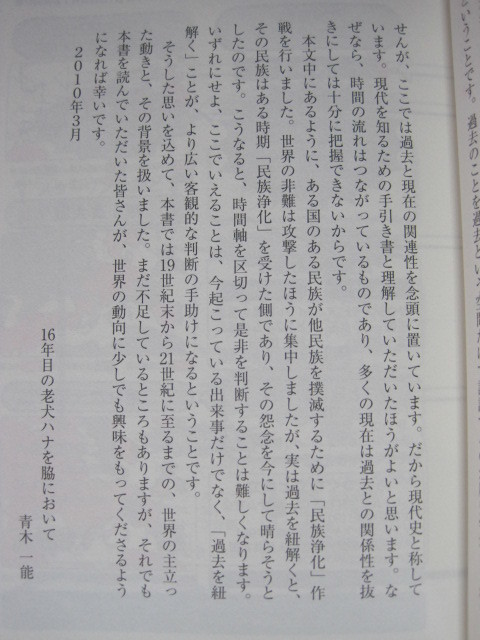 いうことです。過去のことを過去
せんが、ここでは過去と現在の関連性を念頭に置いています。だから現代史と称して
います。現代を知るための手引き書と理解していただいたほうがよいと思います。な
ぜなら、時間の流れはつながっているものであり、多くの現在は過去との関係性を抜
きにしては十分に把握できないからです。
本文中にあるように、ある国のある民族が他民族を撲滅するために「民族浄化」作
戦を行いました。世界の非難は攻撃したほうに集中しましたが、実は過去を紐解くと、
その民族はある時期「民族浄化」を受けた側であり、その怨念を今にして晴らそうと
したのです。こうなると、時間軸を区切って是非を判断することは難しくなります。
いずれにせよ、ここでいえることは、今起こっている出来事だけでなく、「過去を紐
解く」ことが、より広い客観的な判断の手助けになるということです。
そうした思いを込めて、本書では19世紀末から21世紀に至るまでの、世界の主立っ
た動きと、その背景を扱いました。まだ不足しているところもありますが、それでも
本書を読んでいただいた皆さんが、世界の動向に少しでも興味をもってくださるよう
になれば幸いです。
2010年3月
16年目の老犬ハナを脇において
青木 一能